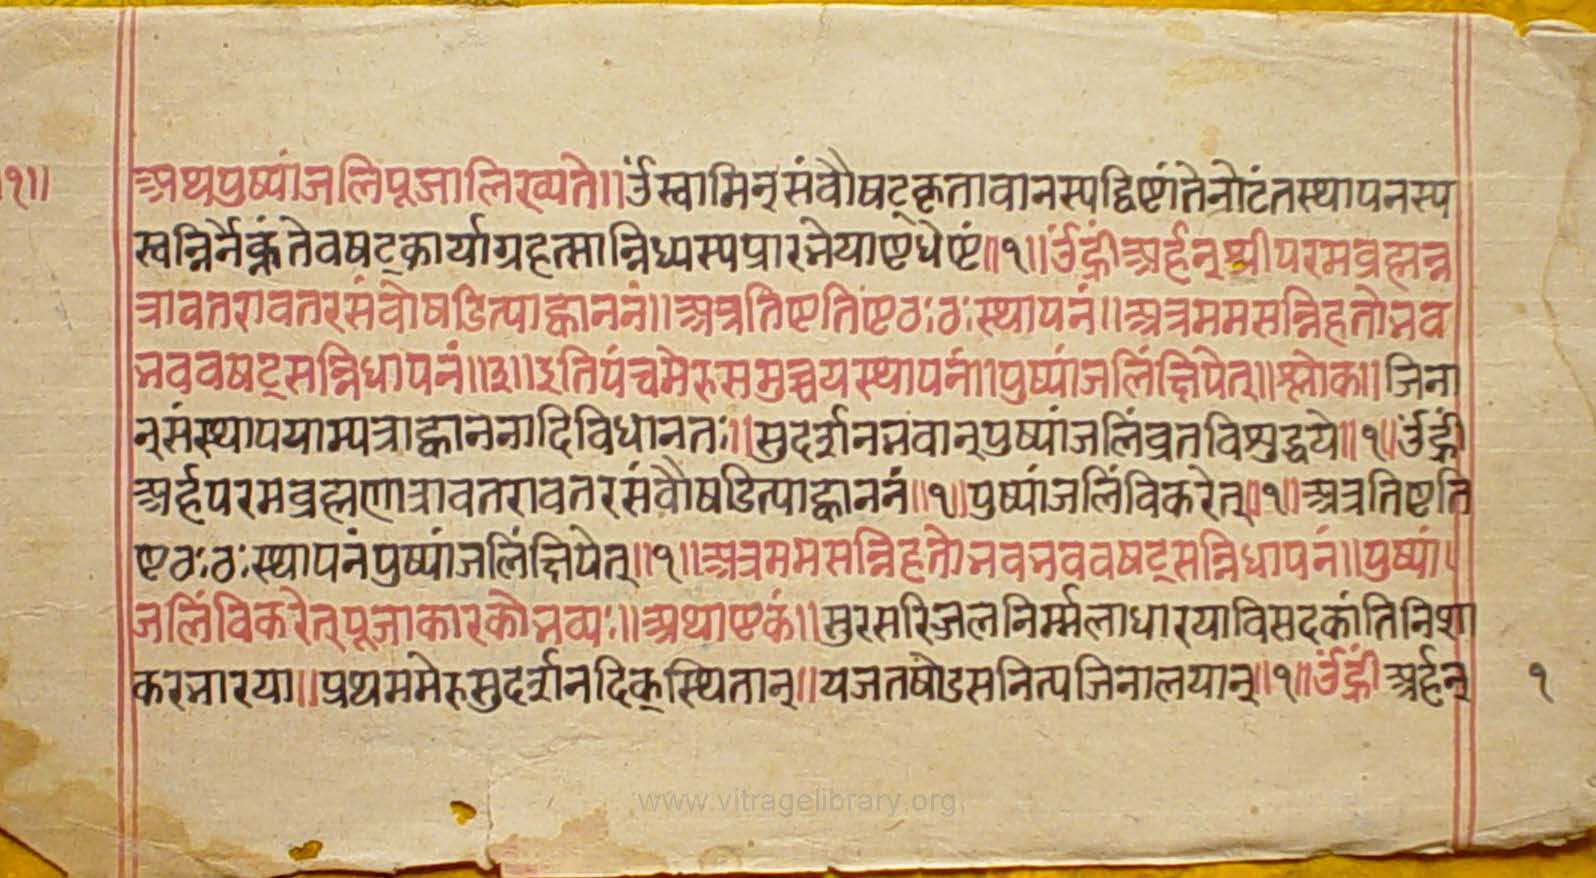 १॥ अथपुष्पांजलिपूजालिख्यते॥ उँस्वामिन्संवौषट्कृतावानस्पद्विष्टांतेनोटंतस्थापनस्प
स्वन्निर्नेक्नंतेवषट्कार्याग्रहत्सान्निध्यस्पप्रारभेयाष्टधेष्टिं॥१॥उँह्रींअर्हन्श्रीपरमब्रह्मन्न
त्रावतरावतरसंवौषडित्पाह्वाननं॥अत्रतिष्टतिंष्टठःठःस्थापनं॥अत्रममसन्निहतोभव
भववषट्सन्निधापनं॥३॥इतिपंचमेरुसमुच्चयस्थापनं॥पुष्पांजलिंक्षिपेत्॥श्लोक॥जिना
न्संस्थापयाम्पत्राह्वाननादिविधानतः॥सुदर्शनभवान्पुष्पांजलिंव्रतविशुद्धये॥१॥उँह्रीं
अर्हंपरमब्रह्मणात्रावतरावतरसंवौषडित्पाह्वाननं॥१॥पुष्पांजलिंविकरेत्॥१॥अत्रतिष्टति
ष्टठःठःस्थापनंपुष्पांजलिंक्षिपेत्॥१॥अत्रममसन्निहतोभवभववषट्सन्निधापनं॥पुष्पां॥
जलिंविकरेत्पूजाकारकोभव्यः॥अथाष्टकं॥सुरसरिज्जलनिर्म्मलाधारयाविसदकांतिनिशा
करभारया॥प्रथममेरुसुदर्शनदिक्स्थितान्॥यजतषोडसनित्पजिनालयान्॥१॥उँह्रींअर्हन् १
www.vitragelibrary.org